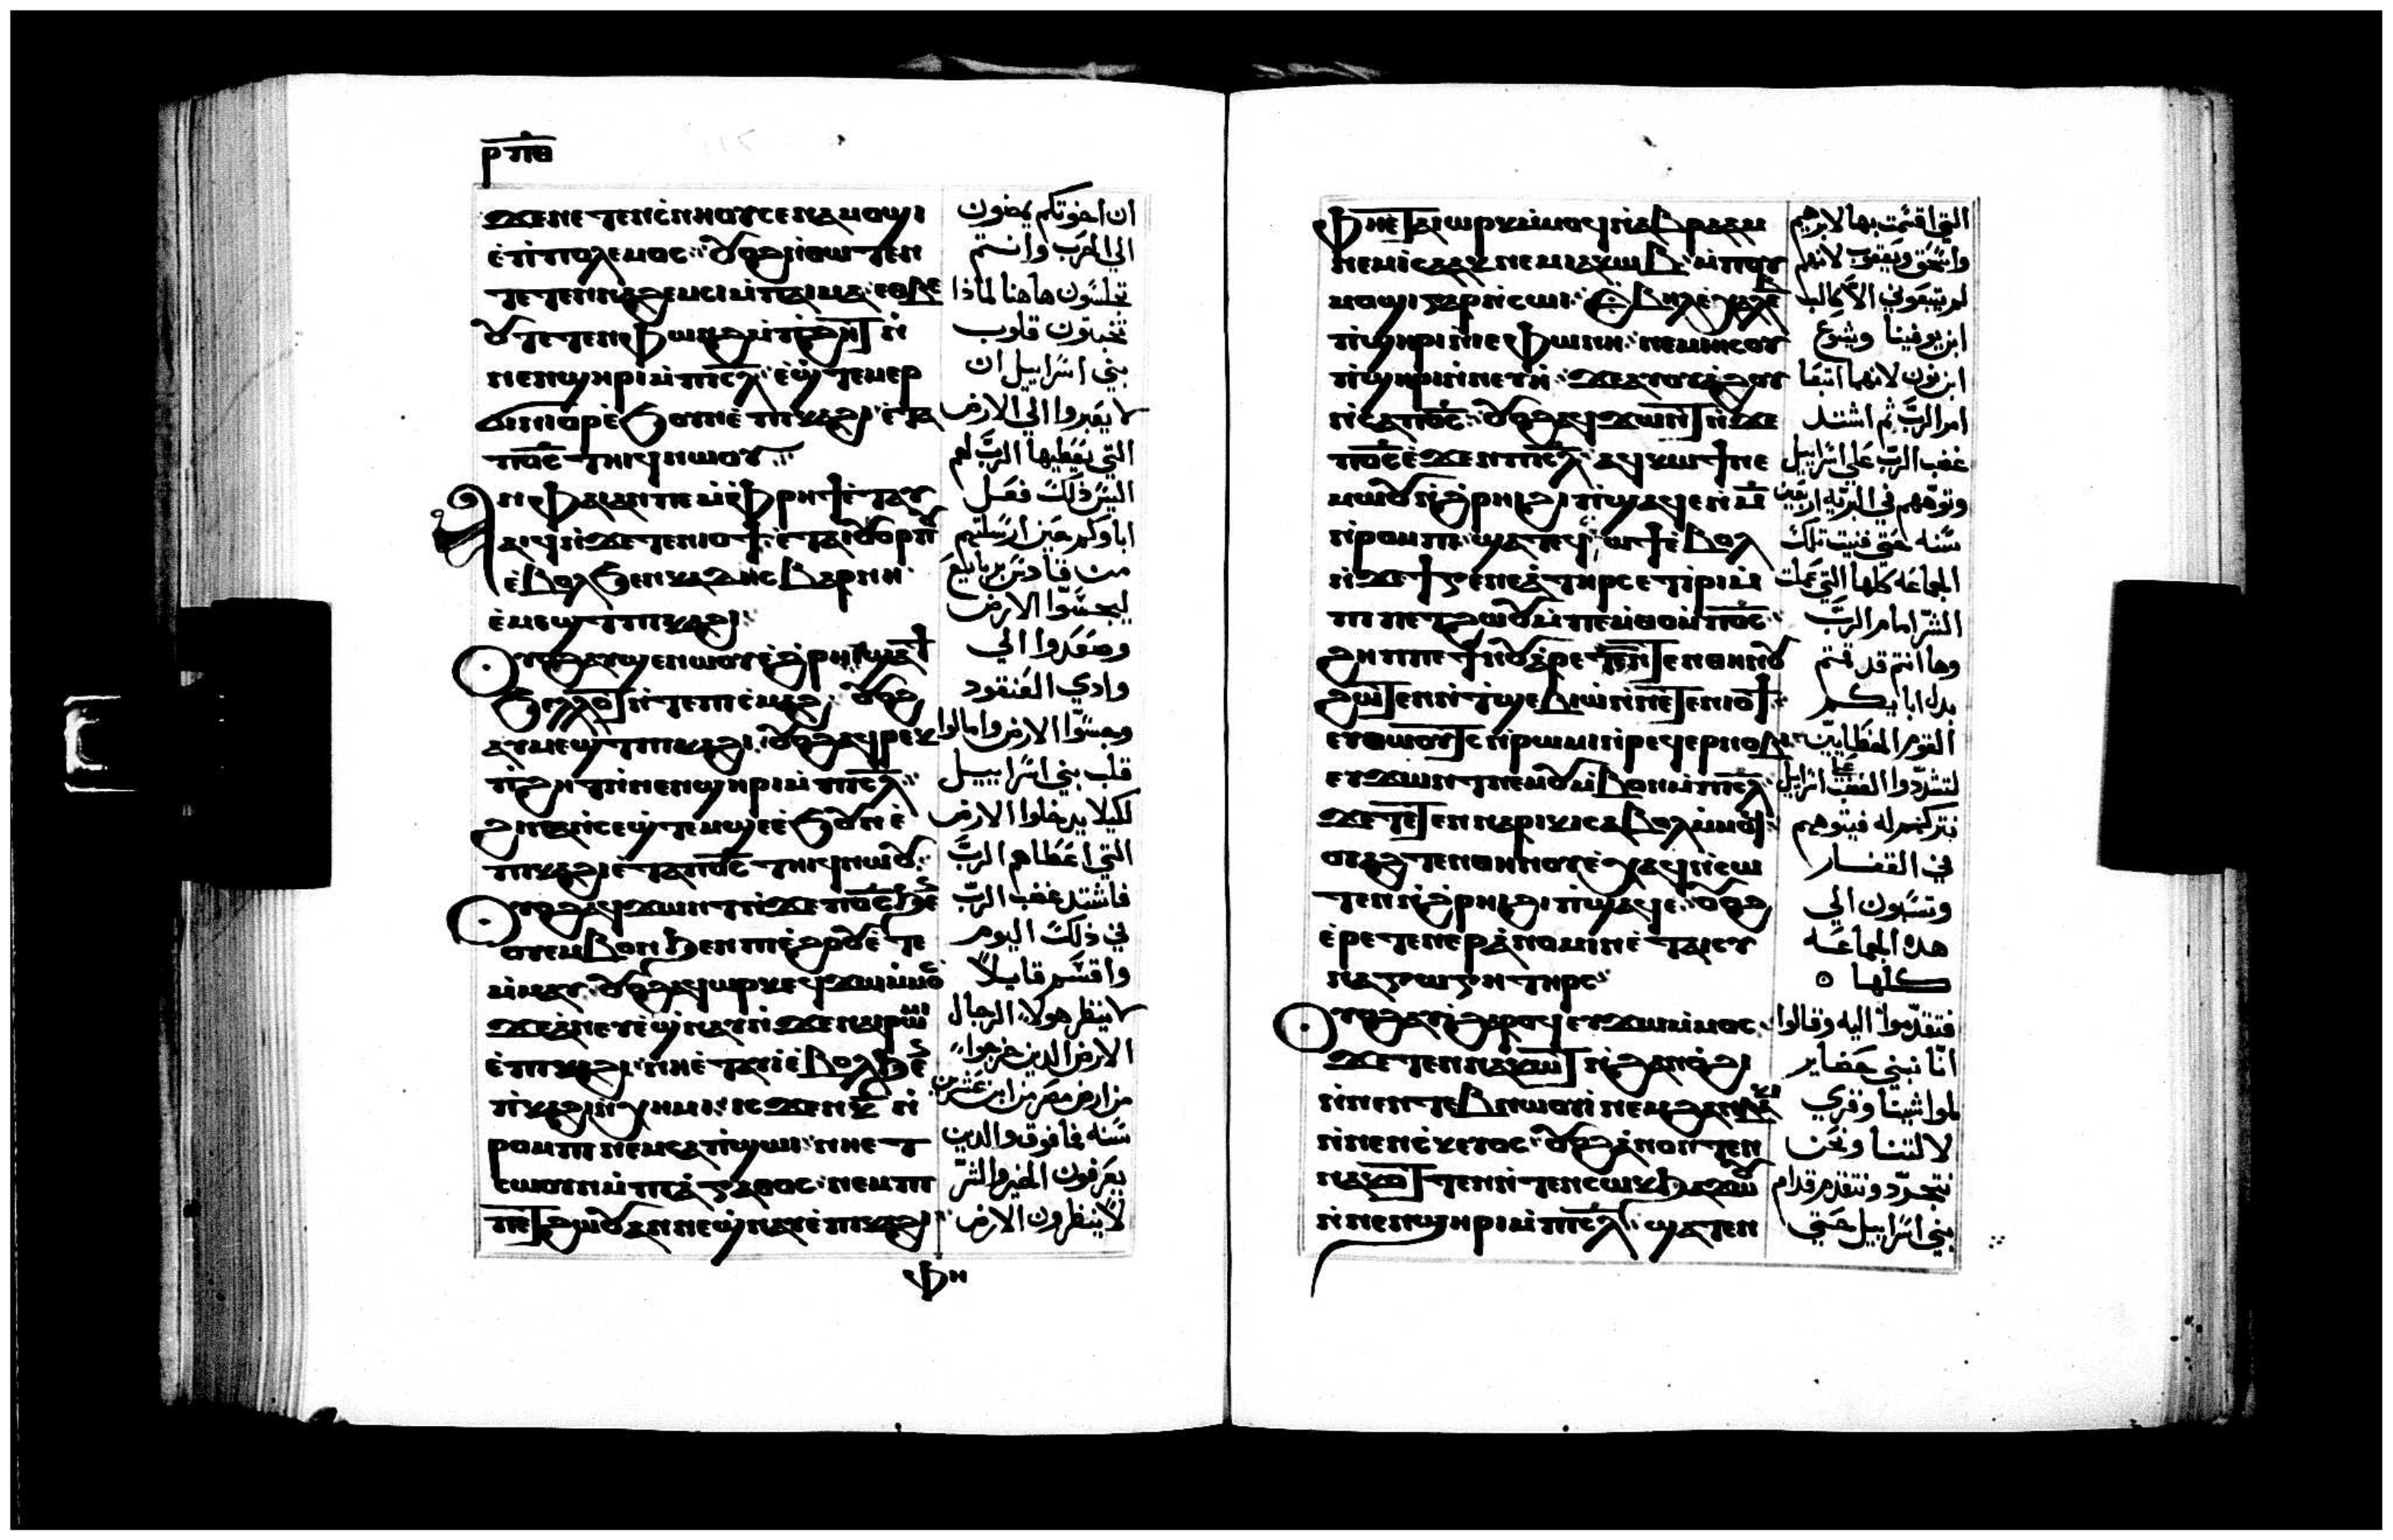 ⲣⲡⲑ
ϫⲉⲛⲉⲧⲉⲛⲥ̀ⲛⲏⲟⲩⲥⲉⲛⲁⲙⲟϣⲓ
ⲉ̀ⲡⲓⲡⲟⲗⲉⲙⲟⲥ ⲟⲩⲟϩⲛ̀ⲑⲱⲧⲉⲛ
ⲧⲉⲧⲉⲛⲛⲁϩⲉⲙⲥⲓⲙ̀ⲡⲁⲓⲙⲁ ⲉⲑⲃⲉ
ⲟⲩⲧⲉⲧⲉⲛⲫⲱⲛϩⲙ̀ⲡϩⲏⲧ ⲛ̀
ⲛⲉⲛϣⲏⲣⲓⲙ̀ⲡⲓⲥ̅ⲗ̅ ⲉ̀ϣⲧⲉⲙⲉⲣ
ϫⲓⲛⲓⲟⲣ ⲉ̀ϧⲟⲩⲛⲉ̀ⲡⲓⲕⲁϩⲓ ⲉ̀ⲧⲁ
ⲡⲟ̅ⲥ̅ ⲧⲏⲓϥⲛⲱⲟⲩ
ⲙⲏⲫⲁⲓⲁⲛⲡⲉ ⲙ̀ⲫⲣⲏϯ ⲉ̀ⲧⲁⲩ
ⲁⲓϥⲛ̀ϫⲉⲛⲉⲧⲉⲛⲓⲟϯ ⲉ̀ⲧⲁⲓⲟⲩⲟⲣⲡⲟⲩ
ⲉ̀ⲃⲟⲗϧⲉⲛⲕⲁⲇⲏⲥⲃⲁⲣⲛⲏ
ⲉ̀ⲙⲉϣⲧⲡⲓⲕⲁϩⲓ
ⲟⲩⲟϩⲁⲩϣⲉⲛⲱⲟⲩⲉ̀ϩⲣⲏⲓϣⲁϯ
ϧⲉⲗⲗⲟⲧ ⲛ̀ⲧⲉⲡⲓⲥ̀ⲙⲁϩ ⲟⲩⲟϩ
ⲁⲩⲙⲉϣⲧⲡⲓⲕⲁϩⲓ ⲟⲩⲟϩⲁⲩⲣⲉⲕ
ⲡ̀ϩⲏⲧⲛ̀ⲛⲉⲛϣⲏⲣⲓⲙ̀ⲡⲓⲥ̅ⲗ̅
ϩⲓⲛⲁⲛ̀ⲥⲉϣ̀ⲧⲉⲙϣⲉⲉ̀ϧⲟⲩⲛⲉ̀
ⲡⲓⲕⲁϩⲓⲉ̀ⲧⲁⲡⲟ̅ⲥ̅ ⲧⲏⲓϥⲛⲱⲟⲩ
ⲟⲩⲟϩⲁϥϫⲱⲛⲧⲛ̀ϫⲉⲡⲟ̅ⲥ̅ϧⲉⲛ
ⲟⲩⲉⲙⲃⲟⲛϧⲉⲛⲡⲓⲉ̀ϩⲟⲟⲩⲉ̀ⲧⲉ
ⲙ̀ⲙⲁⲩ ⲟⲩⲟϩⲁϥⲱⲣⲕ ⲉϥϫⲱⲙ̀ⲙⲟⲥ
ϫⲉⲁ̀ⲛⲉⲩⲉ̀ϣⲛⲁⲩⲛ̀ϫⲉⲛⲁⲓⲣⲱⲙⲓ
ⲉ̀ⲡⲓⲕⲁϩⲓ ⲛⲏⲉ̀ⲧⲁⲩⲓ̀ⲉ̀ⲃⲟⲗϧⲉⲛ
ⲡ̀ⲕⲁϩⲓⲛ̀ⲭⲏⲙⲓ ⲓⲥϫⲉⲛⲕ̅ ⲛ̀
ⲣⲟⲙⲡⲓⲛⲉⲙⲥⲁⲡ̀ϣⲱⲓ ⲛⲏⲉⲧ
ⲥⲱⲟⲩⲛⲙ̀ⲡⲓⲁ̀ⲅⲁⲑⲟⲥ ⲛⲉⲙⲡⲓ
ⲡⲉⲧϩⲱⲟⲩ ⲁⲛⲛⲉⲩϣ̀ⲛⲁⲩⲉ̀ⲡⲓⲕⲁϩⲓ
ⲫⲏ
ان اخوتكم يمضون
الي الحرب وانتم
تجلسون هاهنا لماذا
تخبتون قلوب
بني اسراييل ان
لا يعبروا الي الارض
التي يعطيها الربّ لهم
اليس ذلك فعل
اباوكم حين ارسلتهم
من قادس برنايع
ليجسّوا الارض
وصعدوا الي
وادي العنقود
وجسّوا الارض وامالوا
قلب بني اسراييل
لكيلا يدخلوا الارض
التي اعطاهم الربّ
فاشتد غضب الربّ
في ذلك اليوم
واقسم قايلاً
لا ينظر هولاء الرجال
الارض الدين خرجوا
من ارض مصر من ابن عشرين
سنه فما فوق والدين
يعرفون الخير والشرّ
لا ينظرون الارض
ⲫⲏⲉⲧⲁⲓⲱⲣⲕⲙ̀ⲙⲟϥⲛ̀ⲁⲃⲣⲁⲁⲙ
ⲛⲉⲙⲓⲥⲁⲁⲕⲛⲉⲙⲓⲁⲕⲱⲃ ⲙ̀ⲡⲟⲩ
ⲙⲟϣⲓⲅⲁⲣⲛ̀ⲥⲱⲓ ⲉ̀ⲃⲏⲗⲉ̀ⲭⲁⲗⲉⲃ
ⲡ̀ϣⲏⲣⲓⲛ̀ⲓⲉⲫⲱⲛⲏ ⲛⲉⲙⲓⲏⲥⲟⲩ
ⲡ̀ϣⲏⲣⲓⲛ̀ⲛⲉⲩⲏ ϫⲉⲁⲩⲟⲩⲁϩⲟⲩ
ⲛ̀ⲥⲁⲡⲟ̅ⲥ̅ ⲟⲩⲟϩⲁϥϫⲱⲛⲧ ⲛ̀ϫⲉ
ⲡⲟ̅ⲥ̅ⲉ̀ϫⲉⲛⲡⲓⲥ̅ⲗ̅ ⲁϥⲕⲱϯⲛⲉ
ⲙⲱⲟⲩⲛ̀ϩⲣⲏⲓϩⲓⲡ̀ϣⲁϥⲉⲛ̀ⲙ̅
ⲛ̀ⲣⲟⲙⲡⲓ ϣⲁⲧⲉϥⲙⲟⲩϯⲉ̀ⲃⲟⲗ
ⲛ̀ϫⲉϯⲅⲉⲛⲉⲁ̀ⲧⲏⲣⲥⲉⲧⲓⲣⲓⲙ̀
ⲡⲓⲡⲉⲧϩⲱⲟⲩⲙ̀ⲡⲉⲙ̀ⲑⲟⲙ̀ⲡⲟ̅ⲥ̅
ϩⲏⲡⲡⲉϯⲛⲟⲩⲁⲣⲉⲧⲉⲛⲧⲉⲛⲑⲏⲛⲟⲩ
ϩⲱⲧⲉⲛⲛ̀ⲧ̀ϣⲉⲃⲓⲱ̀ⲛ̀ⲛⲉⲧⲉⲛⲓⲟϯ
ⲉⲩⲑⲱⲟⲩⲧⲥ ⲛ̀ⲣⲱⲙⲓⲛ̀ⲣⲉϥⲉⲣⲛⲟⲃⲓ
ⲉⲩϫⲱⲛⲧⲛⲉⲙⲟⲩⲙ̀ⲃⲟⲛⲙ̀ⲡⲓⲥ̅ⲗ̅
ϫⲉⲧⲉⲧⲉⲛⲛⲁⲣⲓⲕⲓⲥⲁⲃⲟⲗⲙ̀ⲙⲟϥ
ⲟⲩⲟϩ ⲧⲉⲛⲑⲏⲛⲟⲩⲉ̀ⲭⲁϥⲛ̀ⲥⲱ
ⲧⲉⲛⲛ̀ϩⲣⲏⲓϩⲓⲡ̀ϣⲁϥⲉ ⲟⲩⲟϩ
ⲉ̀ⲣⲉⲧⲉⲛⲉⲣⲁ̀ⲛⲟⲙⲓⲛⲉ̀ⲧⲁⲓⲥⲩ
ⲛⲁⲅⲱⲅⲏⲧⲏⲣⲥ
ⲟⲩⲟϩⲁⲩⲓ̀ϩⲁⲣⲟϥⲉⲩϫⲱⲙ̀ⲙⲟⲥ
ϫⲉⲧⲉⲛⲛⲁⲕⲱⲧ ⲛ̀ϩⲁⲛⲟ̀ϩⲓ
ⲛ̀ⲛⲉⲛⲧⲉⲃⲛⲱⲟⲩⲓ ⲛⲉⲙϩⲁⲛⲃⲁⲕⲓ
ⲛ̀ⲛⲉⲛⲥ̀ⲕⲉⲩⲟⲥ ⲟⲩⲟϩⲁ̀ⲛⲟⲛⲧⲉⲛ
ⲛⲁϧⲟⲕⲧⲉⲛ
ⲛ̀ⲛⲉⲛϣⲏⲣⲓⲙ̀ⲡⲓⲥ̅ⲗ̅ ϣⲁⲧⲉⲛ
التي اقسمت بها لابرهيم
واسحق ويعقوب لانهم
لم يتبعوني الاّ كالب
ابن يوفينا ويشوع
ابن نون لانهما اتبعا
امر الربّ ثم اشتد
غضب الربّ علي اسراييل
وتوّههم في البريّه اربعين
سنه حتي فنيت تلك
الجماعه كلّها التي عملت
الشرّ امام الربّ
وها انتم قد قمتم
بدل ابايكم
القوم الخطايين
لتشدّدوا الغضب علي اسراييل
بتركهم له فيتوههم
في القفار
وتسيون الي
هده الجماعه
كلها ه
فتقدّموا اليه وقالوا
انّا نبني حضاير
لمواشينا وقري
لالتنا ونحن
نتجرّد ونتقدم قدام
بني اسراييل حتي